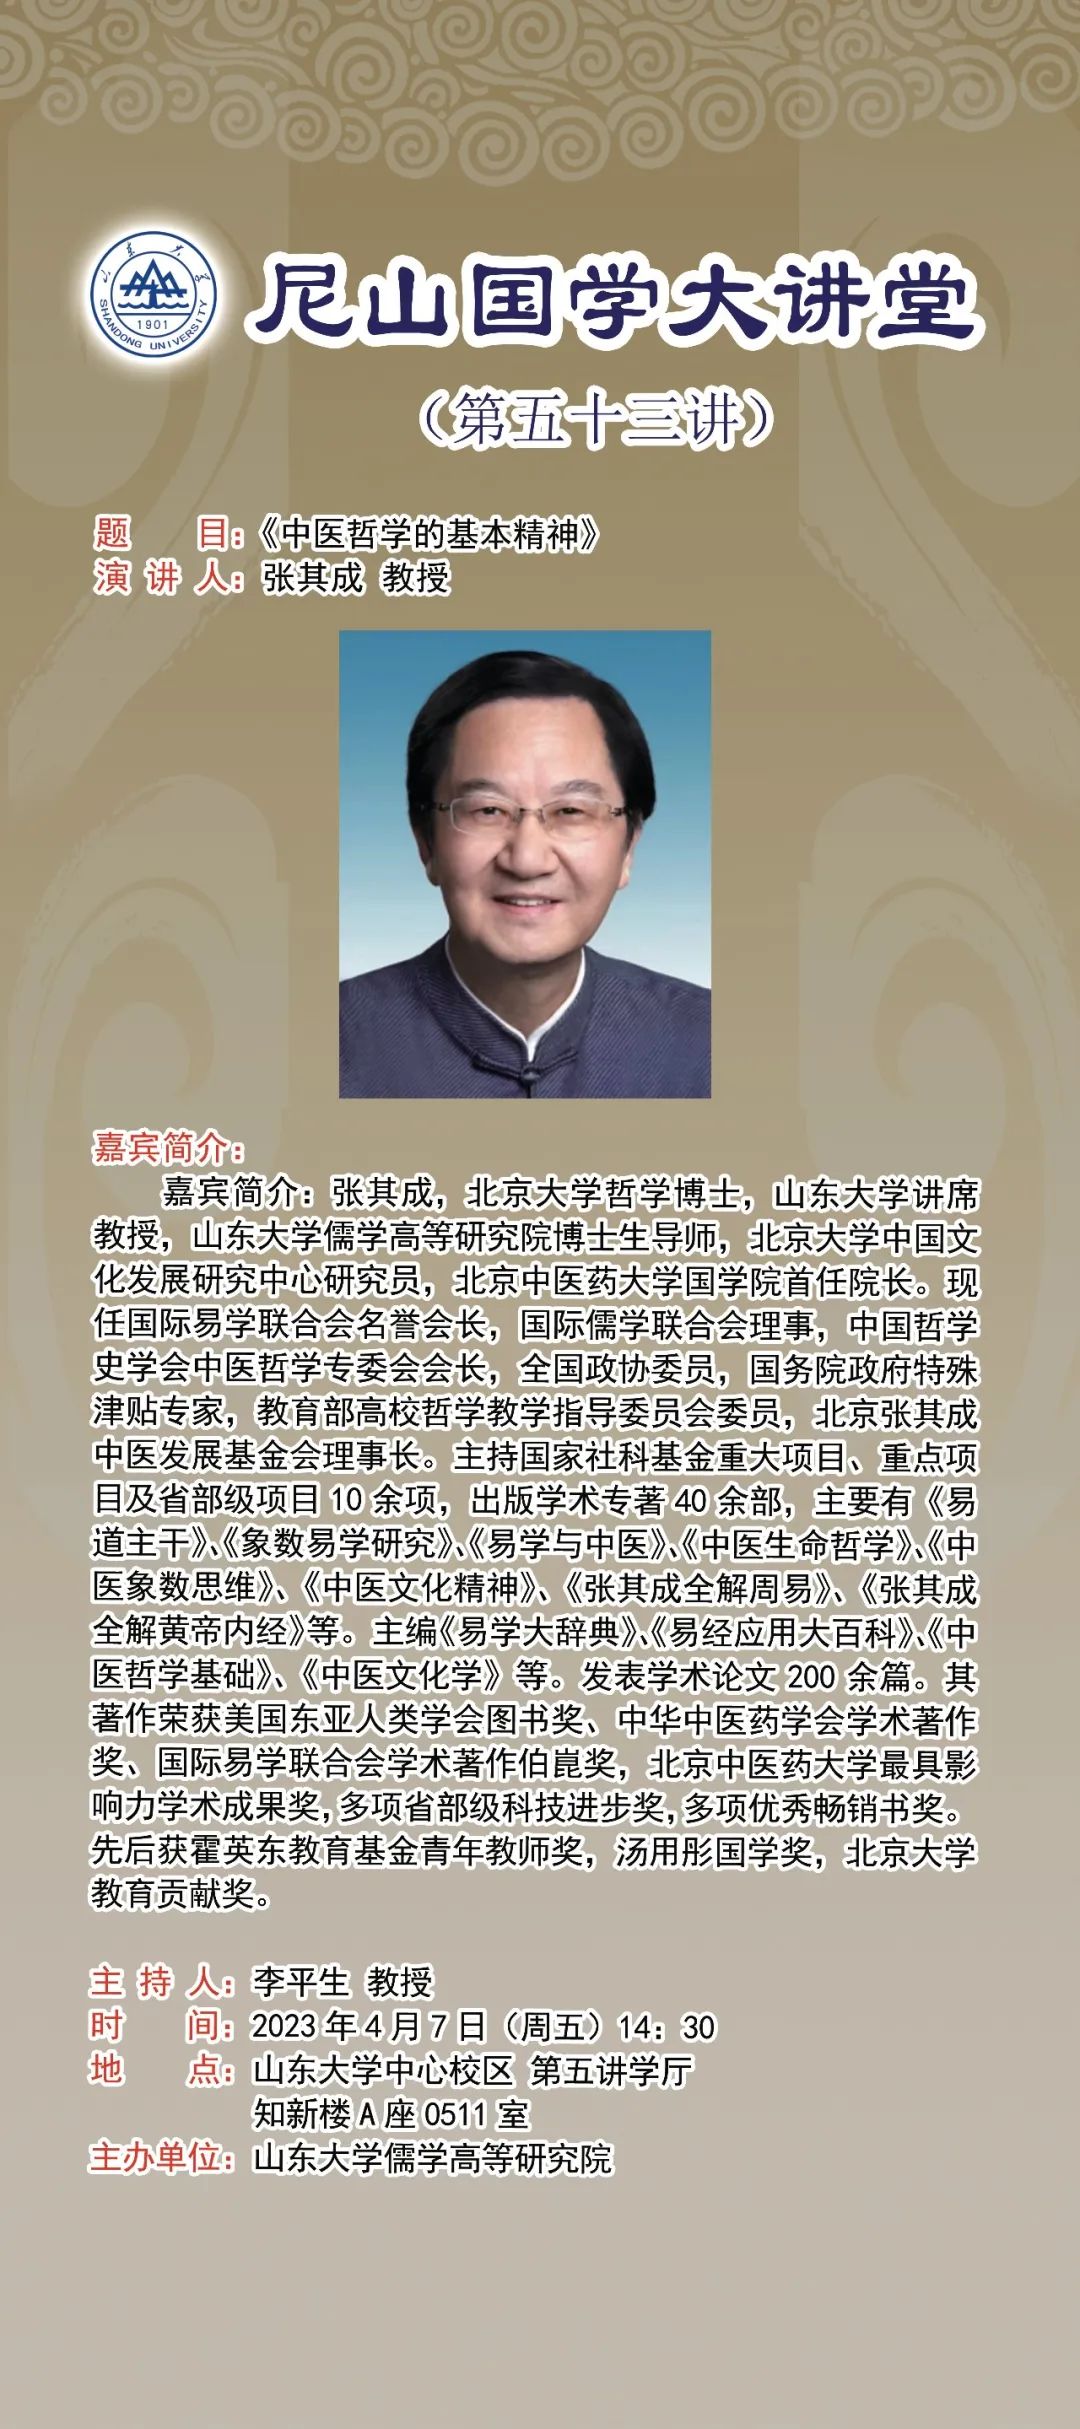 山东大学
SHANDONG UNIVERSITY
1901
尼山国学大讲堂
（第五十三讲）
题 目：《中医哲学的基本精神》
演 讲 人：张其成 教授
嘉宾简介：
嘉宾简介：张其成，北京大学哲学博士，山东大学讲席
教授，山东大学儒学高等研究院博士生导师，北京大学中国文
化发展研究中心研究员，北京中医药大学国学院首任院长。现
任国际易学联合会名誉会长，国际儒学联合会理事，中国哲学
史学会中医哲学专委会会长，全国政协委员，国务院政府特殊
津贴专家，教育部高校哲学教学指导委员会委员，北京张其成
中医发展基金会理事长。主持国家社科基金重大项目、重点项
目及省部级项目 10 余项，出版学术专著 40 余部，主要有《易
道主干》、《象数易学研究》、《易学与中医》、《中医生命哲学》、《中
医象数思维》、《中医文化精神》、《张其成全解周易》、《张其成
全解黄帝内经》等。主编《易学大辞典》、《易经应用大百科》、《中
医哲学基础》、《中医文化学》等。发表学术论文 200 余篇。其
著作荣获美国东亚人类学会图书奖、中华中医药学会学术著作
奖、国际易学联合会学术著作伯崑奖，北京中医药大学最具影
响力学术成果奖，多项省部级科技进步奖，多项优秀畅销书奖。
先后获霍英东教育基金青年教师奖，汤用彤国学奖，北京大学
教育贡献奖。
主 持 人：李平生 教授
时 间：2023 年 4 月 7 日（周五）14：30
地 点：山东大学中心校区 第五讲学厅
知新楼 A 座 0511 室
主办单位：山东大学儒学高等研究院